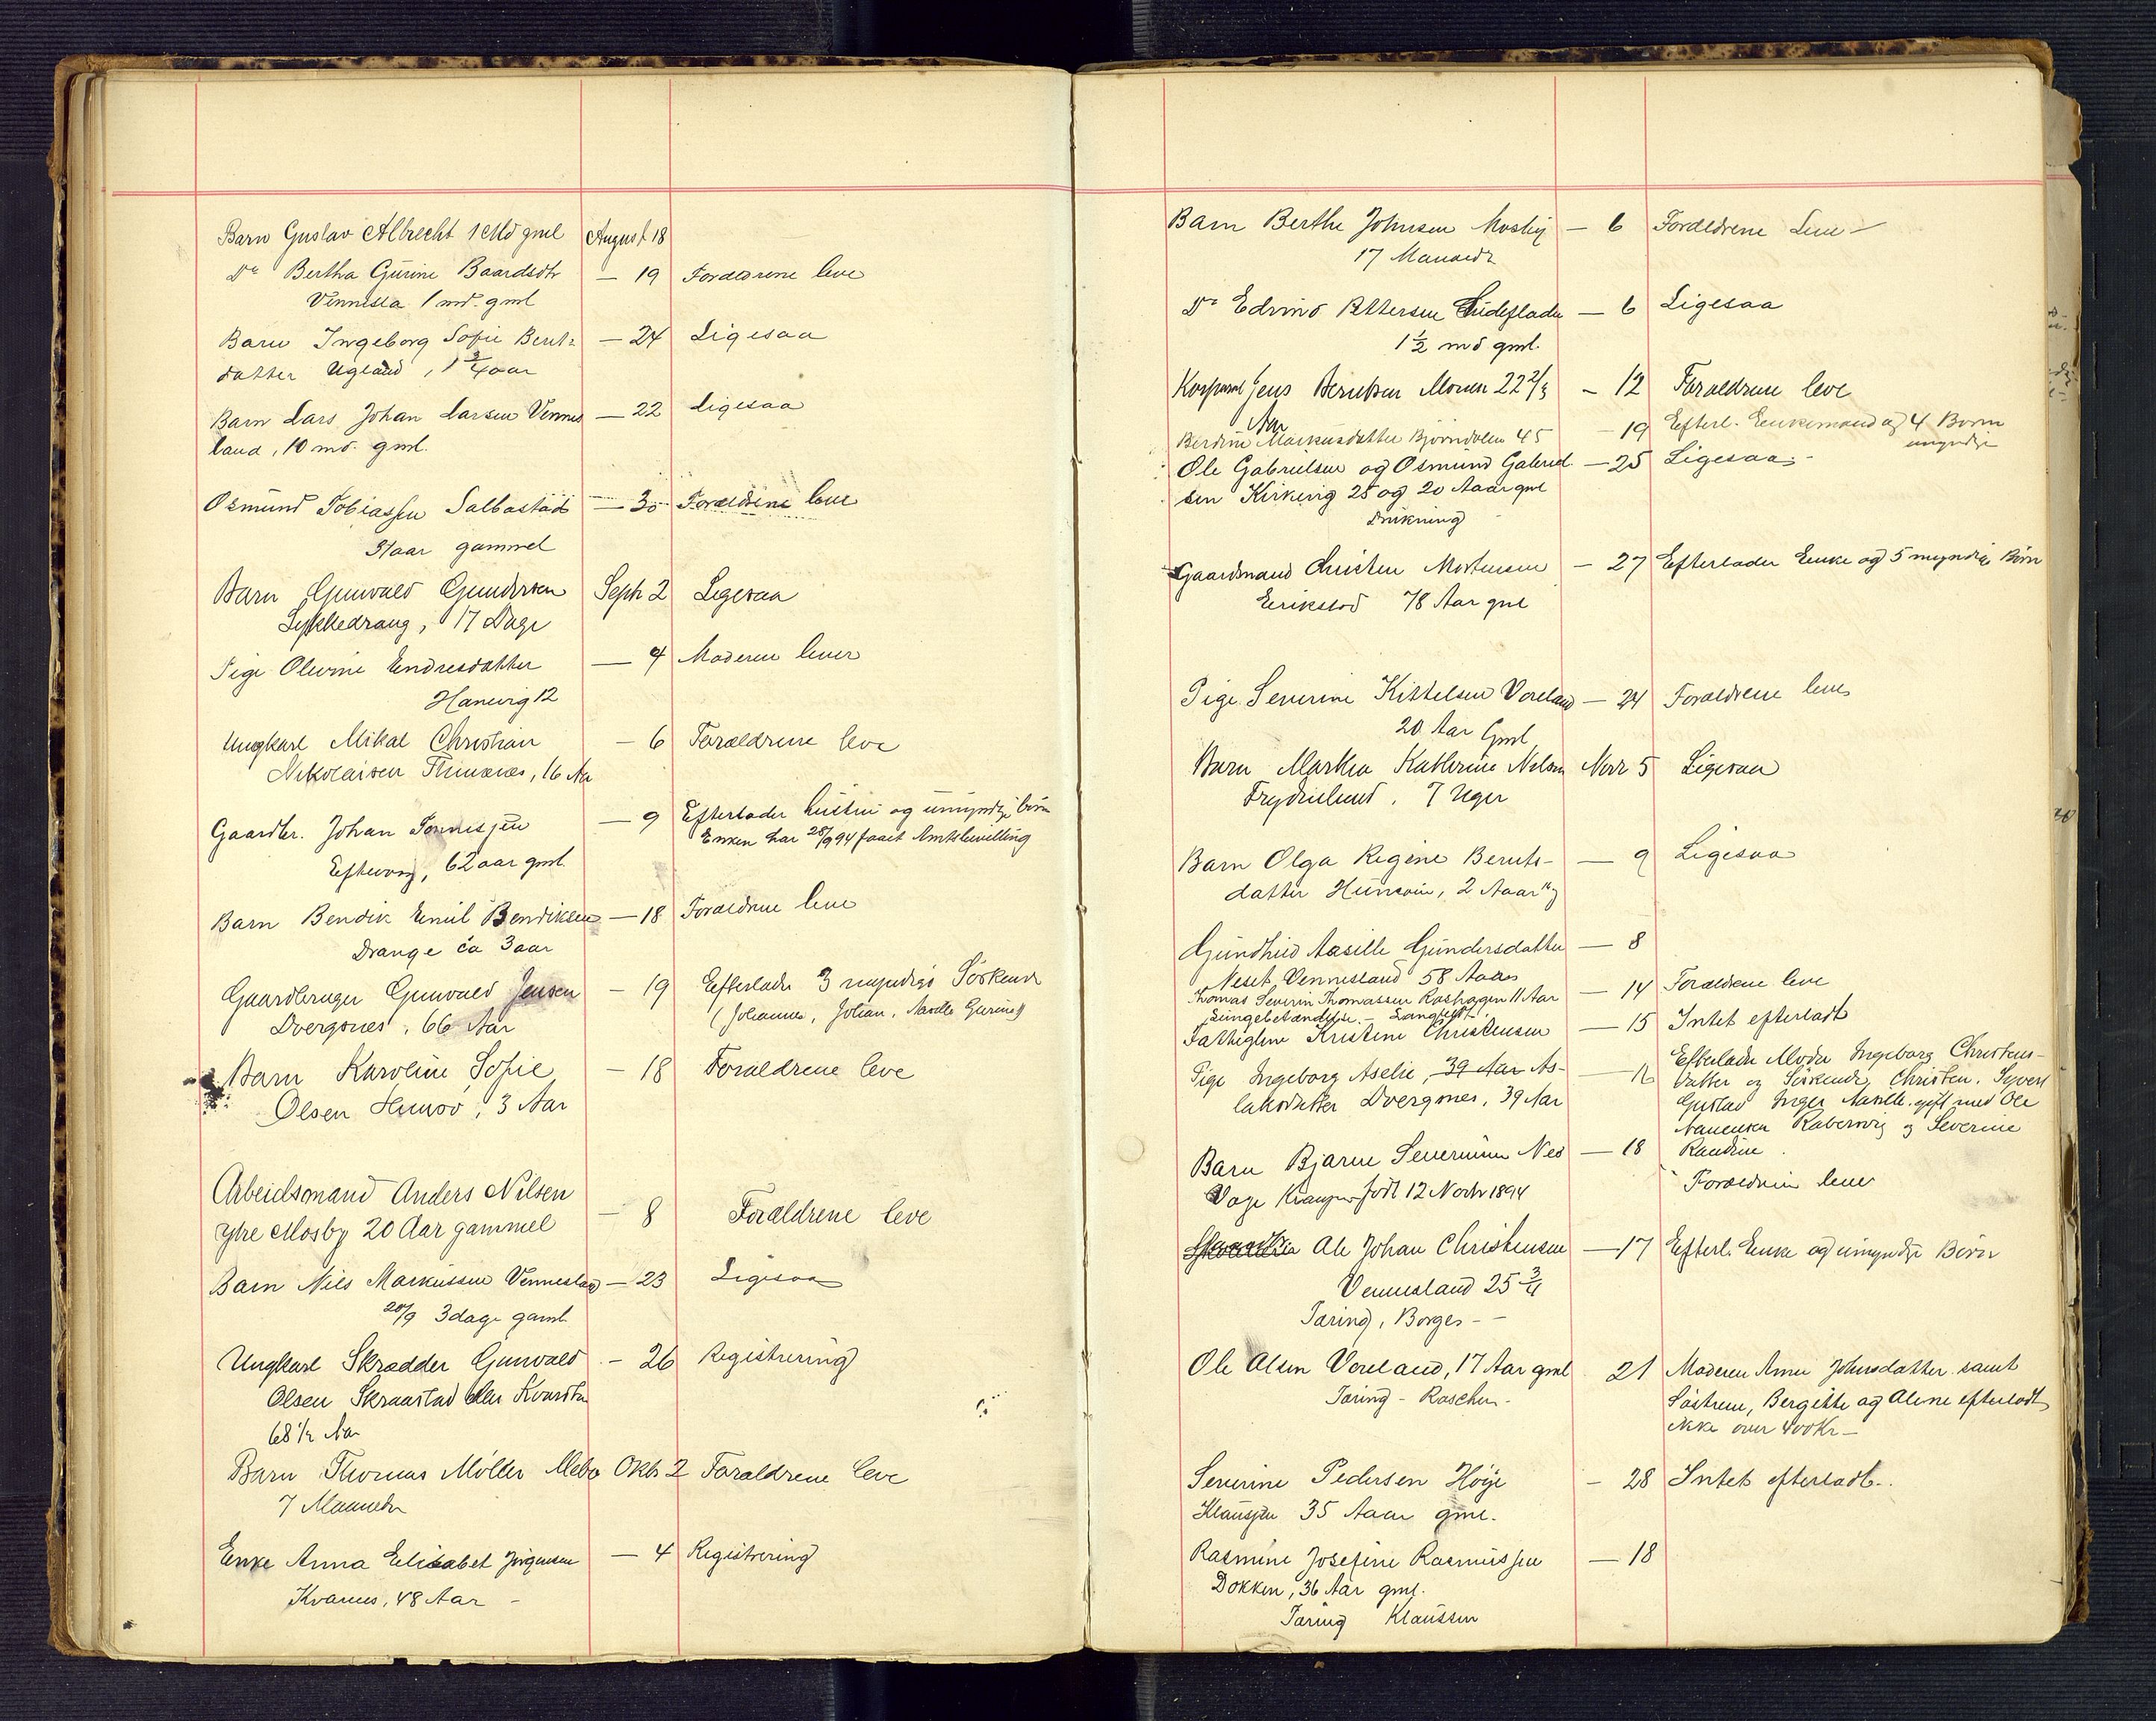 Barn Gustav Albrecht 1 Md gml August 18
Do Bertha Gurine Baardsdtr — 19 Forældrene leve
Vennesla 1 md. gml
Barn Ingeborg Sofie Bent — 24 Ligesaa
datter Ugland, 1 3/4 aar
Barn Lars Johan Larsen Vennes — 22 Ligesaa
land, 10 md. gml.
Osmund Tobiassen — 30 Forældrene leve
31 aar gammel
Barn Gunvald Gundersen Septr 2 Ligesaa
17 Dage
Pige Olevine Endresdatter — 4 Moderen lever
12
Ungkarl Mikal Christian — 6 Forældrene leve
Nikolaisen 16 Aar
Gaardbr. Johan Tønnessen — 9 Efterlader hustru og umyndige børn
62 aar gml. Enken har 28/9 94 faaet Amtsbevilling
Barn Bendik Emil Bendiksen — 18 Forældrene leve
Drange ca 3 aar
Gaardbruger Gunvald Jensen — 19 Efterlader 3 myndige Søskende
Dvergsnes, 66 Aar (Johannes, Johan, Gurine)
Barn Karoline Sofie — 18 Forældrene leve
Olsen 3 Aar
Arbeidsmand Anders Nilsen
ytre Mosby 20 Aar gammel — 8 Forældrene leve
Barn Nils Markussen Vennesland — 23 Ligesaa
20/9 3 dage gaml.
Ungkarl Skrædder Gunvald — 26 Registrering
Olsen Skraastad
68 1/2 Aar
Barn Thomas Møller Oktr 2 Forældrene leve
7 Maaneder
Enke Anna Elisabet Jørgensen — 4 Registrering
48 Aar –
Barn Berthe Johnsen Mosby — 6 Forældrene Leve –
17 Maaneder
Do Edvind Pettersen — 6 Ligesaa
1 1/2 md gml.
Jens Berntsen Moen 22 2/3 – 12 Forældrene leve
Aar
Berdine Markusdatter Bjørndalen 45 – 19 Efterl. Enkemand og 4 Børn
umyndige
Ole Gabrielsen og Osmund Gabriel — 25 Ligesaa –
sen Kirkevig 25 og 20 Aaar gml
Drukning
Gaardmand Christen Mortensen – 27 Efterlader Enke og 5 myndige Børn
Erikstad 78 Aar gml
Pige Severine Kittelsen Voreland — 24 Forældrene leve
20 Aar Gml
Barn Martha Kathrine Nilsen Novr 5 Ligesaa
7 Uger
Barn Olga Regine Bernts- — 9 Ligesaa
datter Hunsøin, 2 Aaar
Gundhild Aasille Gundersdatter — 8
Neset Vennesland 58 Aaar
Thomas Severin Thomassen 11 Aar — 14 Forældrene leve
Fattiglem Kristine Christensen — 15 Intet efterladt
Pige Ingeborg Aselie, 39 Aar As- Efterlader Moder Ingeborg Christens-
laksdatter Dvergsnes, 39 Aar datter og Søskende, Christen, Syvert
Gustav Inger Aasille gift med Ole
og Severine
Barn Bjarne Severinsen Nes — 18 Randine.
Vage født 12 Novbr 1894 Forældrene lever
Ole Johan Christensen — 17 Efterl. Enke og umyndige Børn
Vennesland 25 3/4
Tæring, Borges –
Ole Olsen Voreland, 17 Aar gml 21 Moderen Anne Johnsdatter samt
Tæring – Søstrene, Bergitte og Oline efterladt
ikke over 400 Kr –
Severine Pedersen Høije – 28 Intet efterladt..
Klaussen 35 Aaar gml.
Rasmine Josefine Rasmussen — 18
Dokken, 36 Aar gml.
Tæring Klaussen